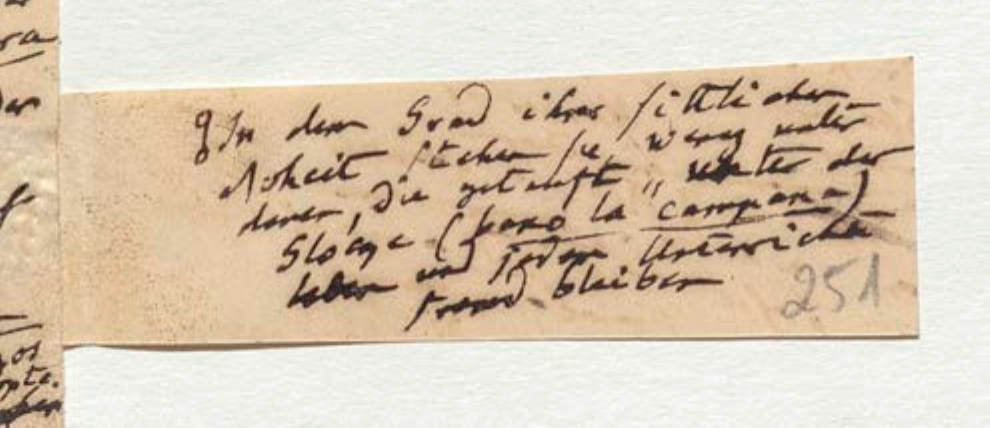 In dem Grad ihrer sittlichen
Roheit stehen sie wenig unter
denen, die getauft „unter der
Glocke (baxo la campana)
leben und jedem Unterricht
fremd bleiben
251